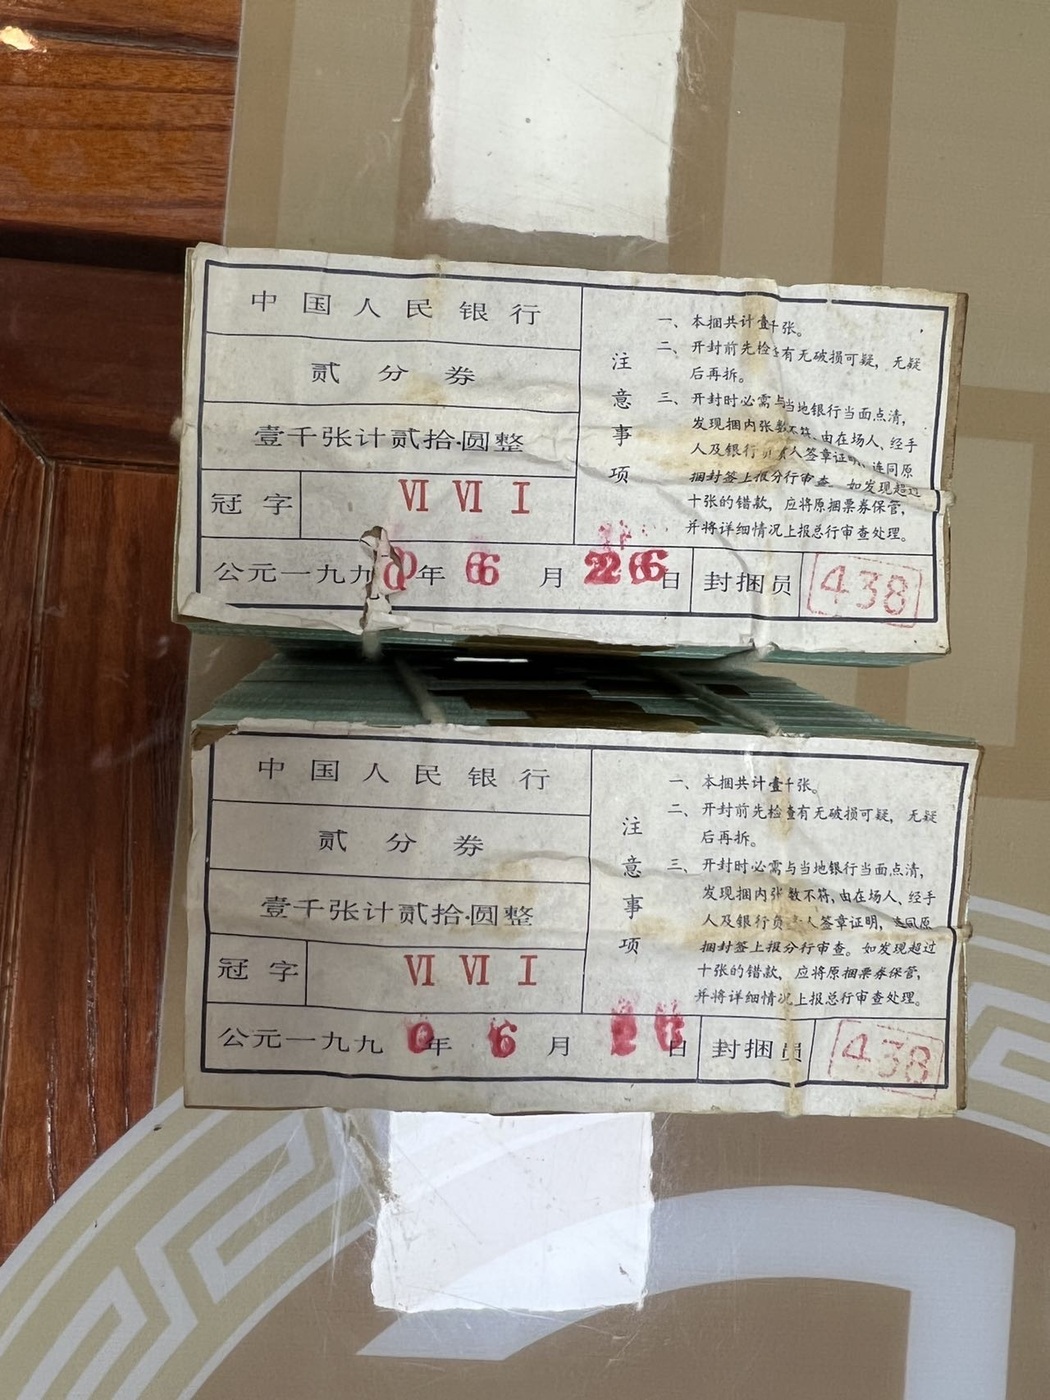 中国人民银行
贰分券
壹千张计贰拾·圆整
冠字 Ⅵ Ⅵ Ⅰ
公元一九九0年 6月 26日 封捆员 438
注意事项
一、本捆共计壹千张。
二、开封前先检查有无破损可疑，无疑
后再拆。
三、开封时必需与当地银行当面点清，
发现捆内张数不符，由在场人、经手
人及银行负责人签章证明，连同原
捆封签上报分行审查。如发现超过
十张的错款，应将原捆票券保管，
并将详细情况上报总行审查处理。
中国人民银行
贰分券
壹千张计贰拾·圆整
冠字 Ⅵ Ⅵ Ⅰ
公元一九九0年 6月 26日 封捆员 438
注意事项
一、本捆共计壹千张。
二、开封前先检查有无破损可疑，无疑
后再拆。
三、开封时必需与当地银行当面点清，
发现捆内张数不符，由在场人、经手
人及银行负责人签章证明，连同原
捆封签上报分行审查。如发现超过
十张的错款，应将原捆票券保管，
并将详细情况上报总行审查处理。